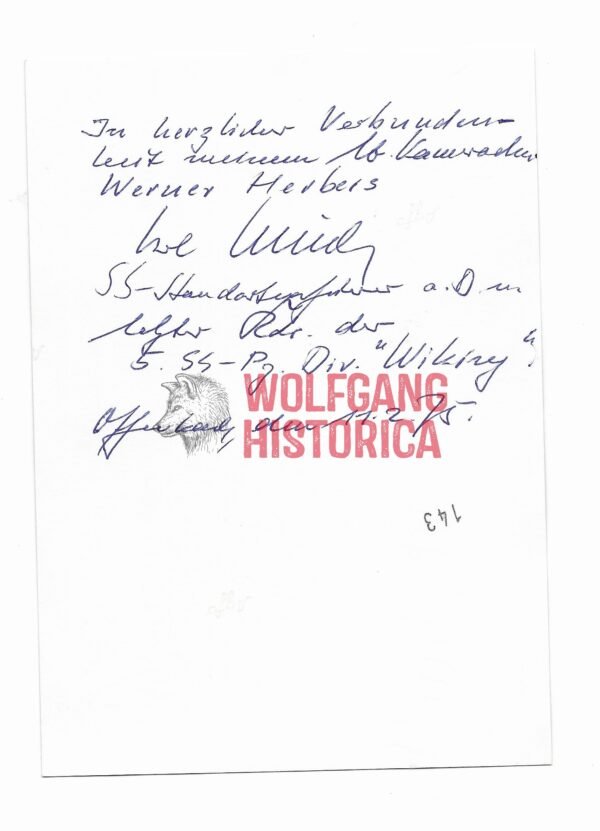 In herzlicher Verbunden-
heit meinem lb. Kameraden
Werner Herbers
SS-Standartenführer a.D. u.
letzter Kdr. der
5. SS-Pz. Div. "Wiking".
Offenbach, den 11.2.75.
WOLFGANG
HISTORICA
143